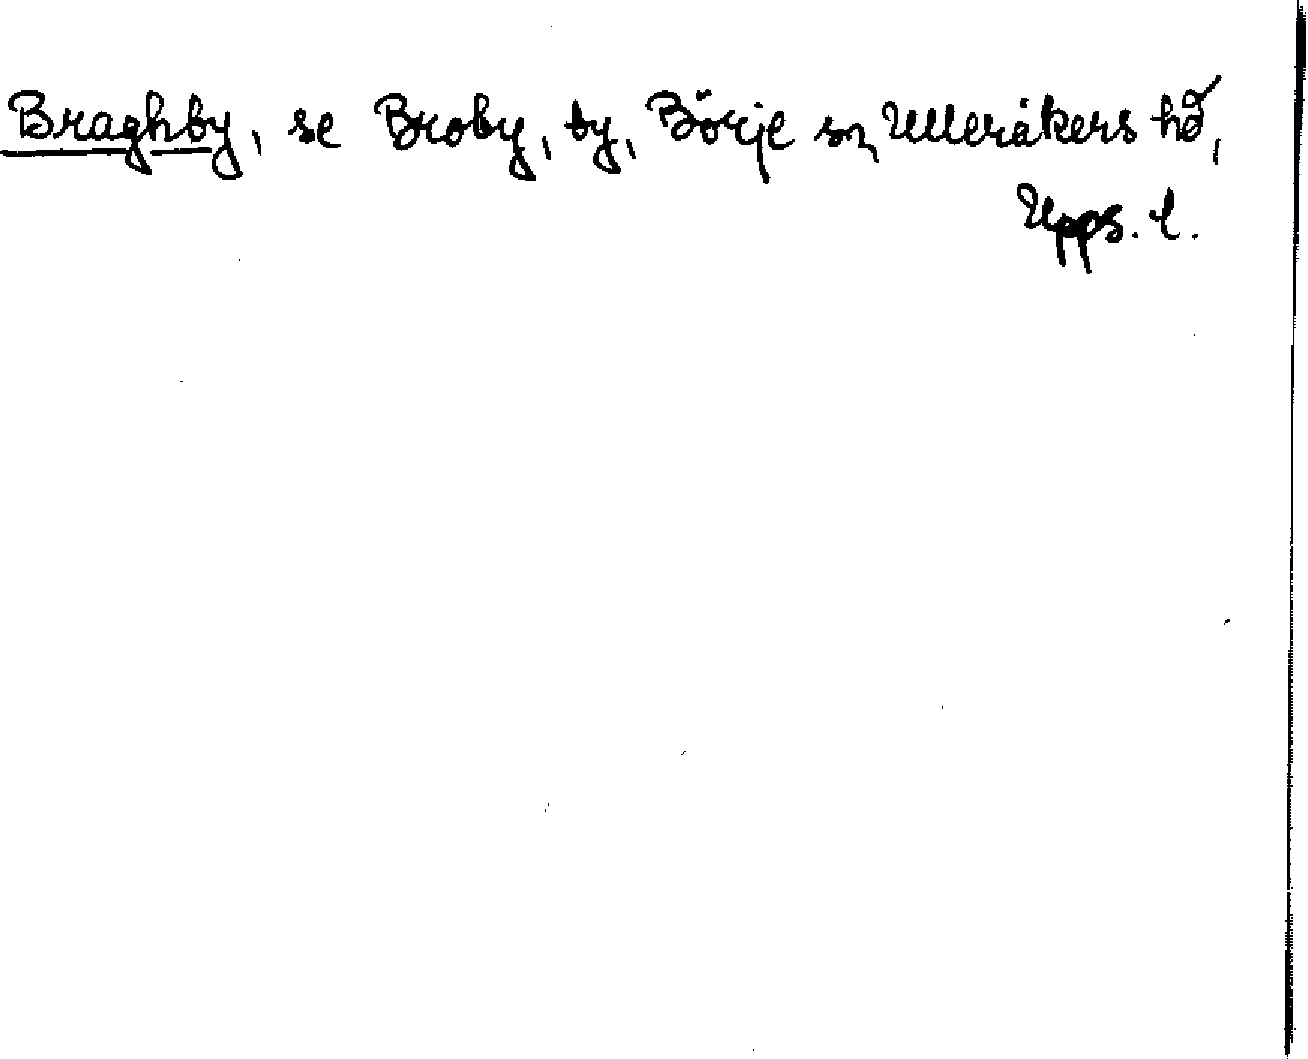 Braghby, se Broby, by, Börje sn, Ulleråkers hd,
Upps. l.